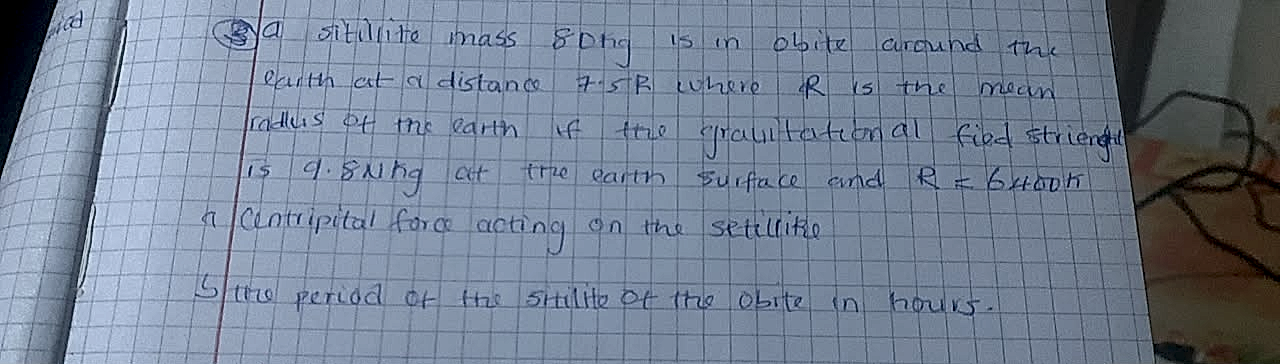 a sitillite mass 80kg is in obite around the
earth at a distance 7.5R where R is the mean
radius of the earth if the gravitational fied strienght
is 9.8N/kg at the earth surface and R = 6400k
a Centripital force acting on the setillite
b the period of the sitilite of the obite in hours.